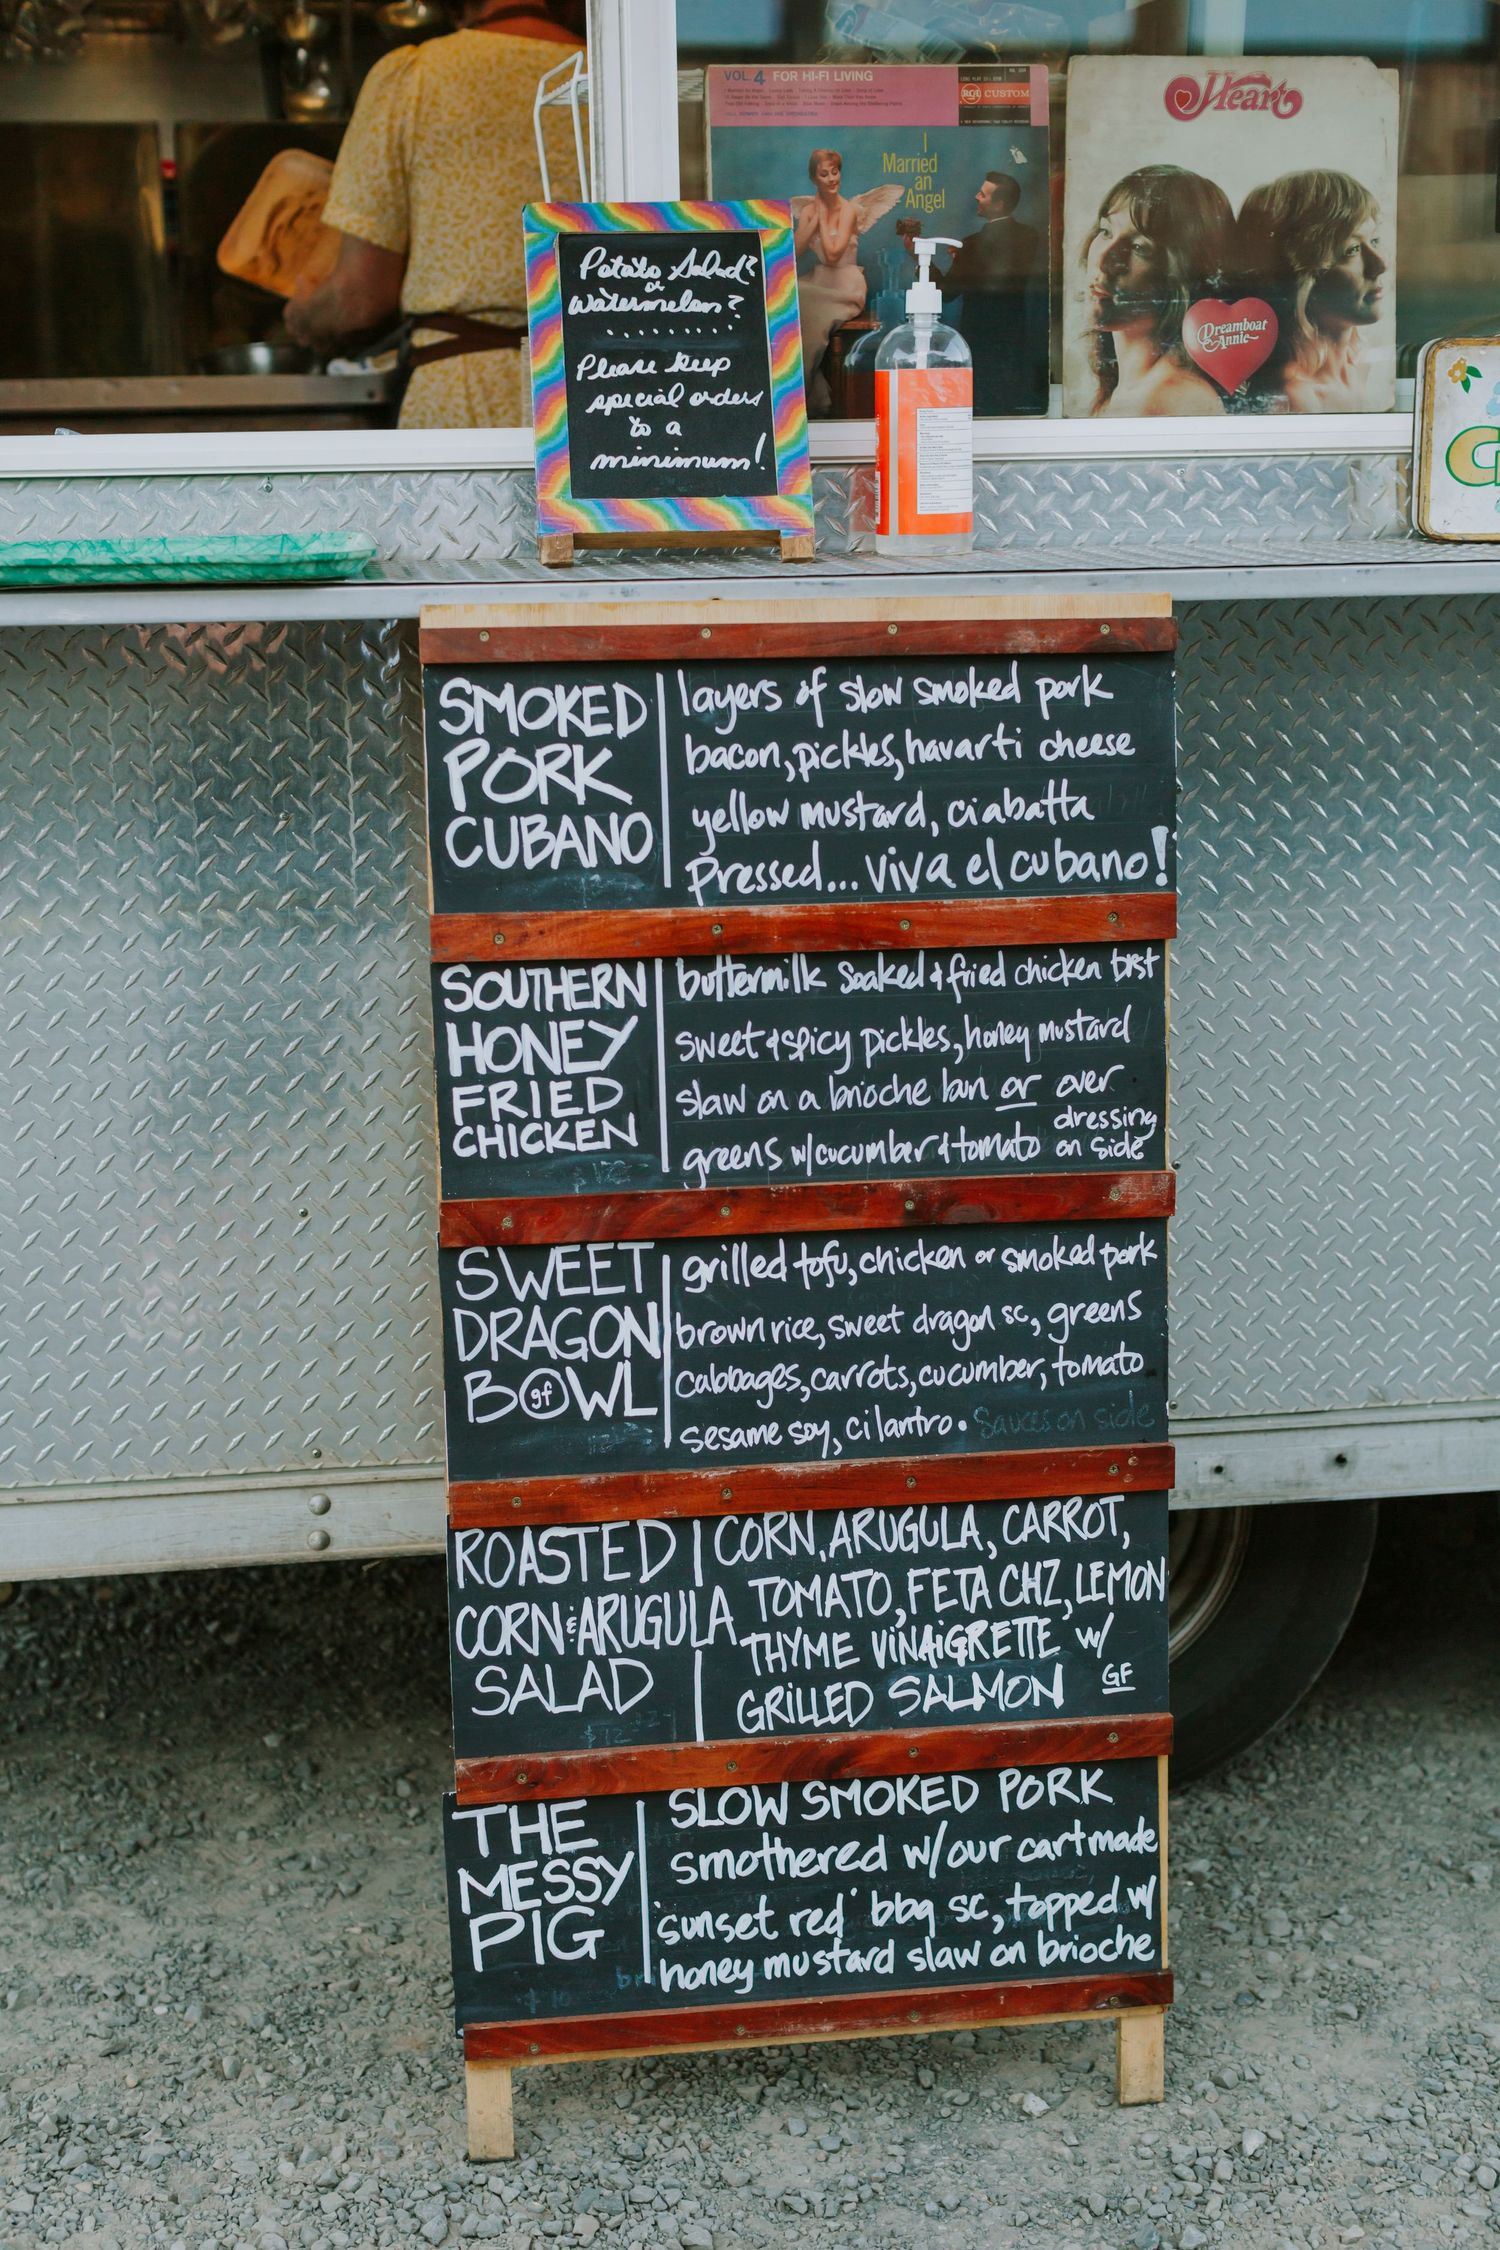 VOL. 4 FOR HI-FI LIVING
RCA CUSTOM
I
Married
an
Angel
Heart
Dreamboat
Annie
Potato Salad?
or
Watermelon?
.........
Please keep
special orders
to a
minimum!
SMOKED
PORK
CUBANO
layers of slow smoked pork
bacon, pickles, havarti cheese
yellow mustard, ciabatta
pressed... viva el cubano!
SOUTHERN
HONEY
FRIED
CHICKEN
buttermilk soaked + fried chicken brst
sweet + spicy pickles, honey mustard
slaw on a brioche bun or over
greens w/cucumber + tomato dressing
on side
SWEET
DRAGON
BOWL
gf
grilled tofu, chicken or smoked pork
brown rice, sweet dragon sc, greens
cabbages, carrots, cucumber, tomato
sesame soy, cilantro. Sauces on side
ROASTED
CORN & ARUGULA
SALAD
$12
CORN, ARUGULA, CARROT,
TOMATO, FETA CHZ, LEMON
THYME VINAIGRETTE w/
GRILLED SALMON GF
THE
MESSY
PIG
SLOW SMOKED PORK
smothered w/our cartmade
'sunset red' bbq sc, topped w/
honey mustard slaw on brioche